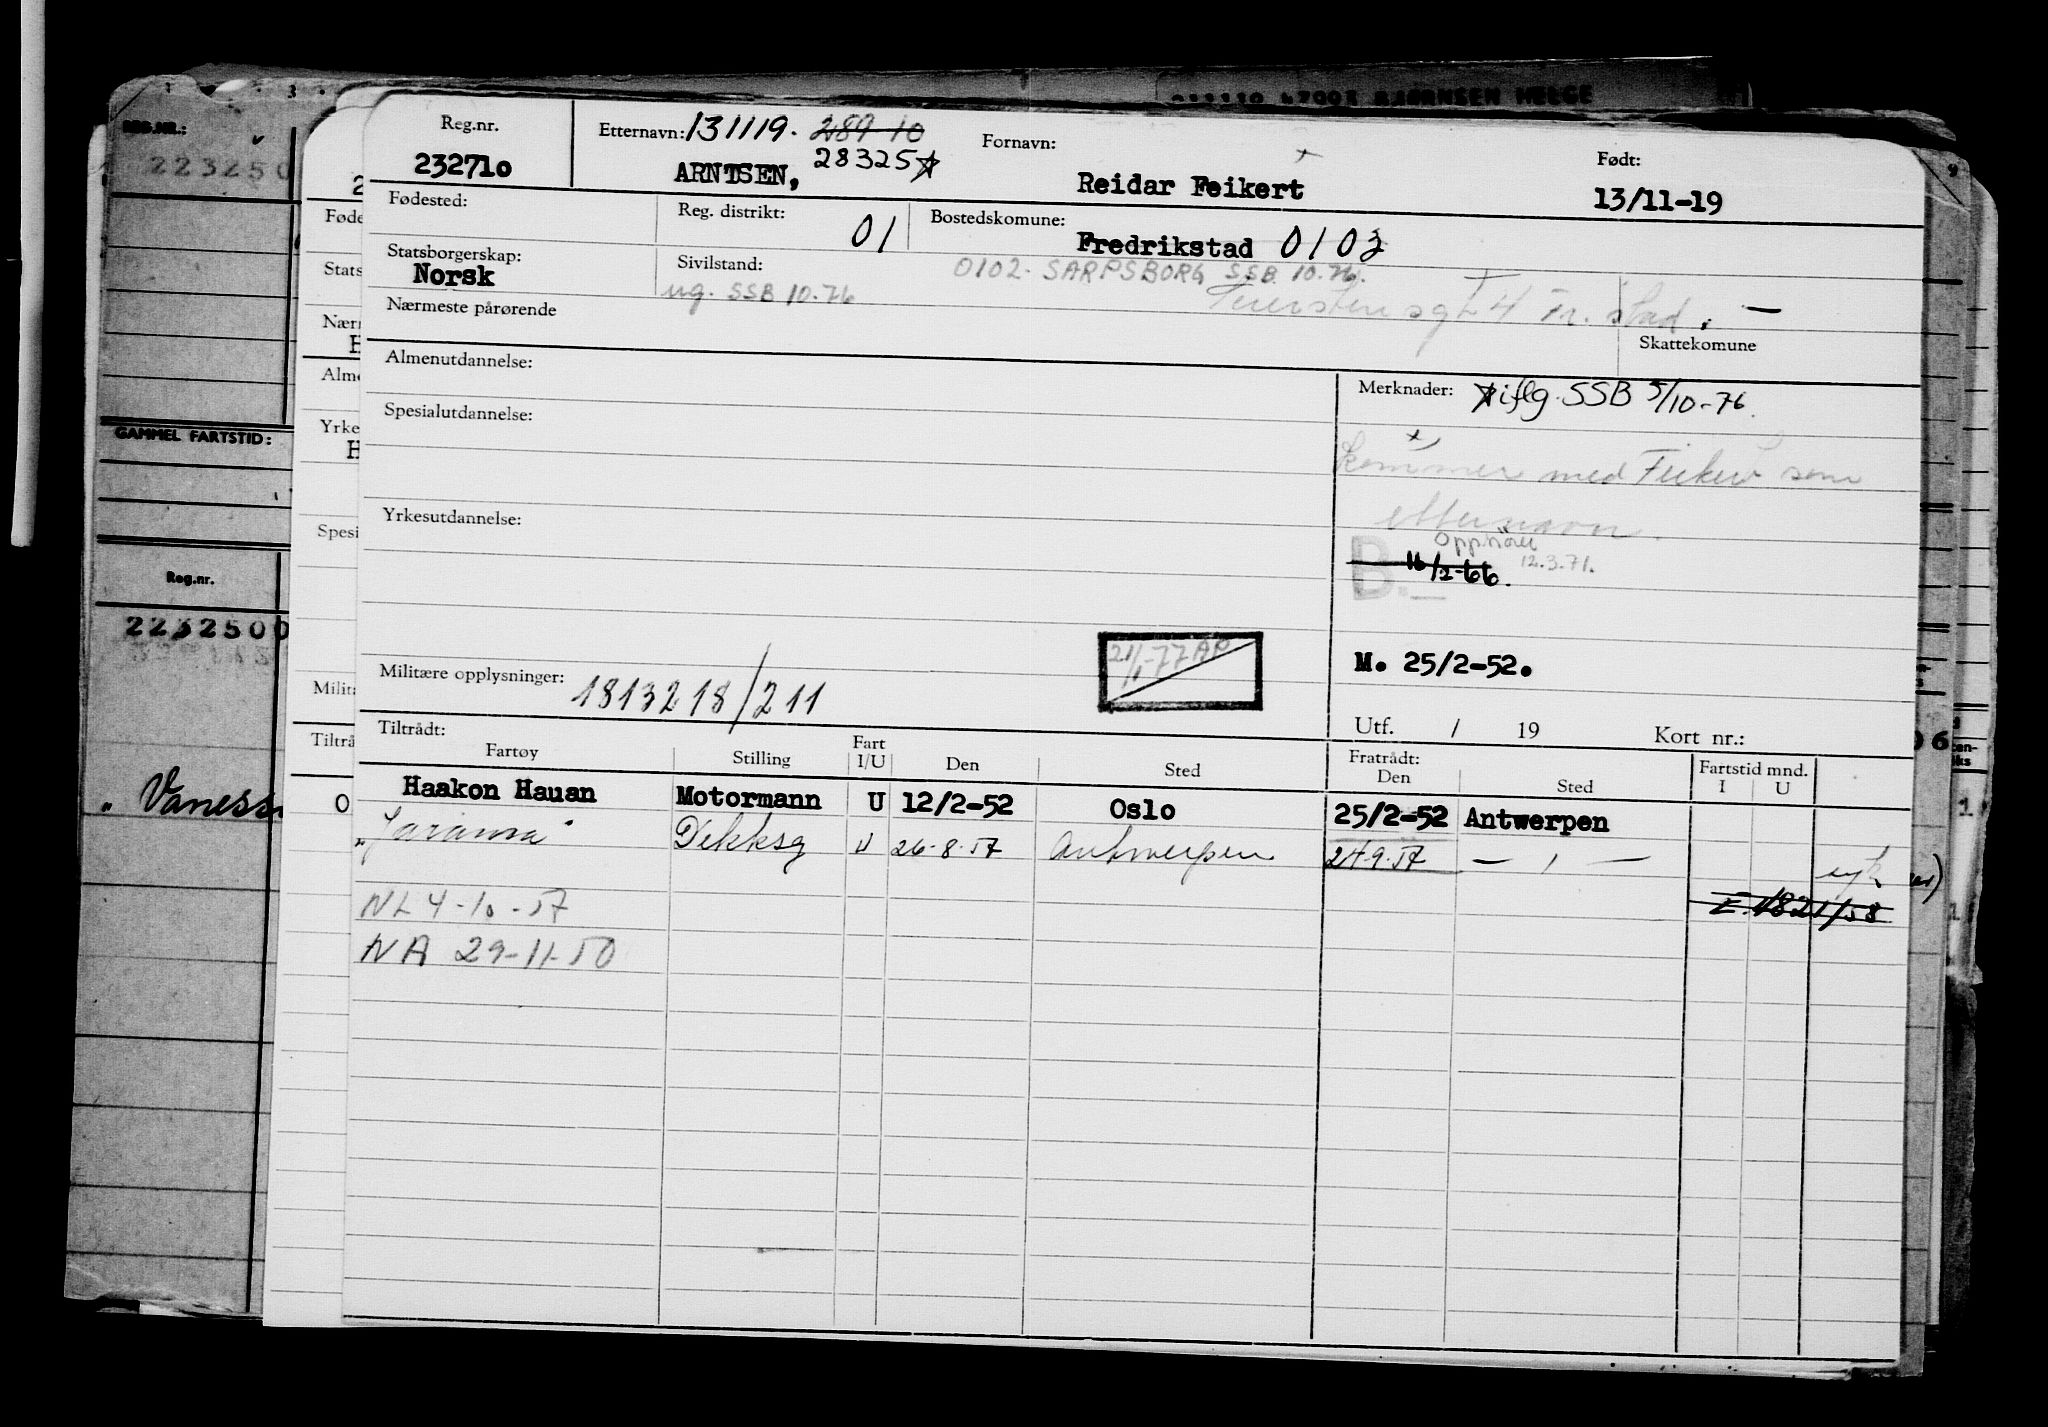 011110 47003 BJØRNSEN HELGE
REG.NR.:
223250
GAMMEL FARTSTID:
Reg.nr.
2232500
" Vaness
Føde
Stats
Nærm
H
Alme
Yrke
H
Spesi
Milita
Tiltrå
O
Reg.nr.
232710
Etternavn: 131119. 289 10
28325☆
ARNTSEN,
Fornavn:
Reidar Feikert
Født:
13/11-19
Fødested:
Reg. distrikt: 01
Bostedskomune:
Fredrikstad 0103
Statsborgerskap:
Norsk
Sivilstand:
ug. SSB 10.76
0102. SARPSBORG SSB 10.76.
4 Fr. stad. —
Nærmeste pårørende
Skattekomune
Almenutdannelse:
Merknader: ☆ iflg. SSB 5/10-76.
Spesialutdannelse:
kommer med som
etternavn.
Yrkesutdannelse:
Opphører
B. 16/2-66. 12.3.71.
Militære opplysninger: 1813218/211
21/1-77 AP
M. 25/2-52.
Utf. / 19 Kort nr.:
Tiltrådt:
Fartøy Stilling Fart I/U Den Sted Fratrådt: Den Sted Fartstid mnd. I U
Haakon Hauan Motormann U 12/2-52 Oslo 25/2-52 Antwerpen
"Jarama" Dekksg U 26-8-57 Antwerpen 24-9-57 — " —
NL 4-10-57
E. 1821/58
NA 29-11-50